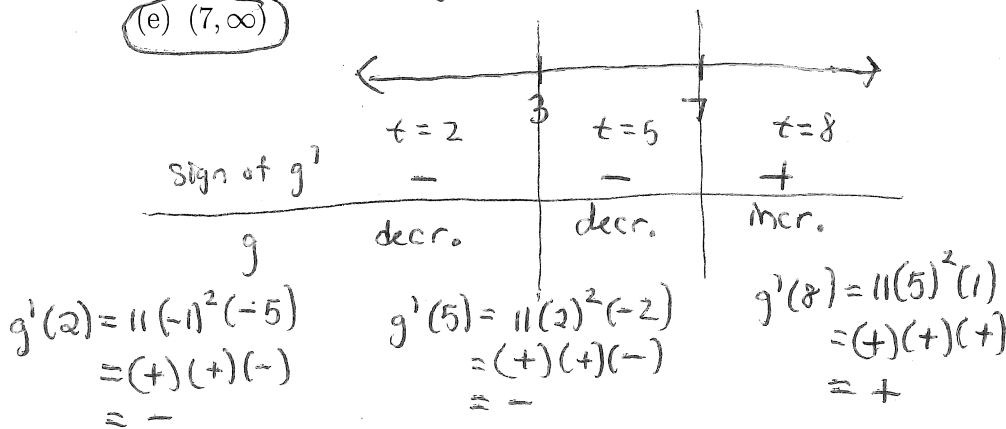 (e) (7, ∞)
3 7
t = 2 t = 5 t = 8
sign of g' − − +
g decr. decr. incr.
g'(2) = 11(-1)²(-5) g'(5) = 11(2)²(-2) g'(8) = 11(5)²(1)
= (+)(+)(-) = (+)(+)(-) = (+)(+)(+)
= − = − = +